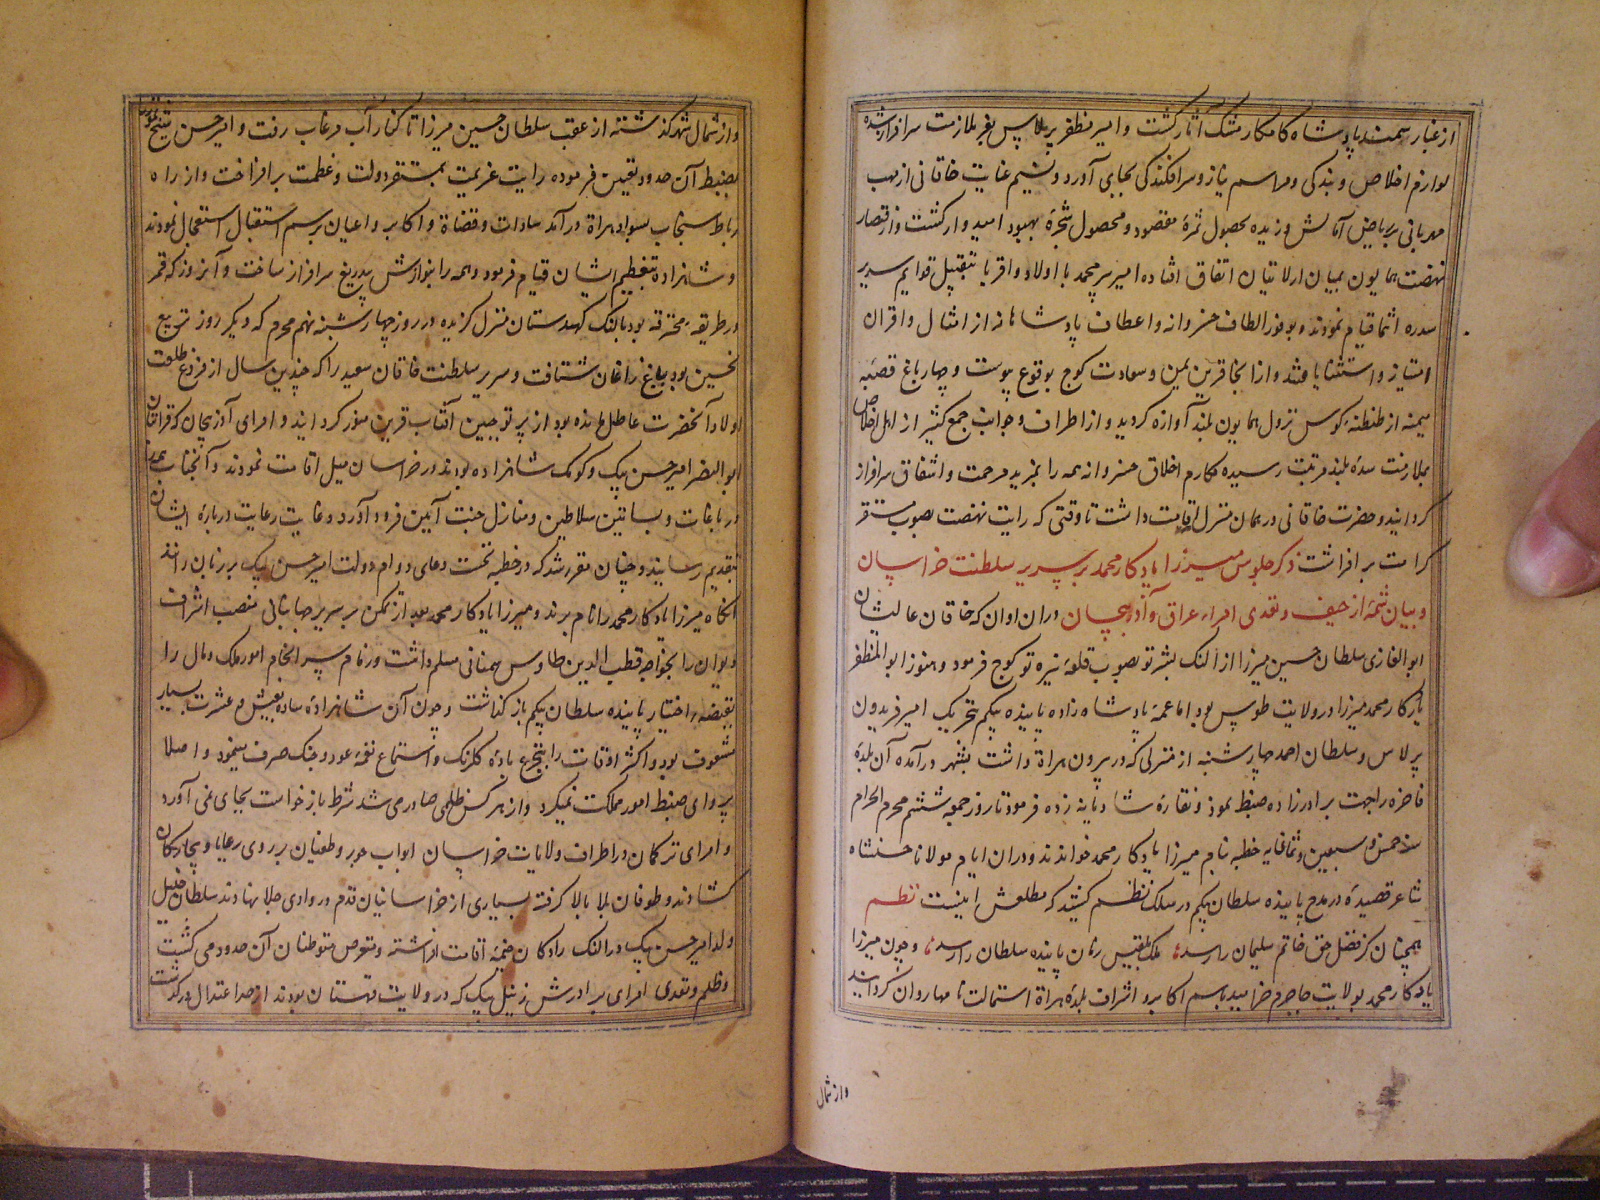 از غبار سمند پادشاه کامکار مشک آثار گشت و امیر مظفر برلاس بعز ملازمت سرافراز شده
لوازم اخلاص و بندگی و مراسم نیاز و سرافکندگی بجای آورد و نسیم عنایت خاقانی از مهب
مهربانی بر ریاض آمالش وزیده بحصول ثمرهٔ مقصود و محصول شجرهٔ بهبود امیدوار گشت و از قتصار
نهضت همایون بمیان ارلاتیان اتفاق افتاده امیر سرمحمد با اولاد و اقربا بتقبیل قوایم سریر
سدره انتما قیام نمودند و بوفور الطاف خسروانه و اعطاف پادشاهانه از امثال و اقران
امتیاز و استثنا یافتند و از آنجا قرین یمن و سعادت کوچ بوقوع پیوست و چهار باغ قصبه
میمنه از طنطنهٔ کوس نزول همایون بلند آوازه گردید و از اطراف و جوانب جمع کثیر از اهل اخلاص
بملازمت سدهٔ بلند مرتبت رسیده مکارم اخلاق خسروانه همه را بمزید مرحمت و اشفاق سرافراز
گردانید و حضرت خاقانی در همان منزل اقامت داشت تا وقتی که رایت نهضت بصوب مستقر
کرامت برافراشت ذکر جلوس میرزا یادگار محمد بر سریر سلطنت خراسان
و بیان شمهٔ از حیف و تعدی امراء عراق و آذربیجان در آن اوان که خاقان عالیشان
ابوالغازی سلطان حسین میرزا از النک بشرتو بصوب قلعهٔ نیره تو کوچ فرمود و هنوز ابوالمظفر
یادگار محمد میرزا در ولایت طوس بود اما عمهٔ پادشاه زاده پاینده بیکم بتحریک امیر فریدون
برلاس و سلطان احمد چارشنبه از منزلی که در بیرون هراة داشت بشهر درآمده آن بلدهٔ
فاخره را جهت برادرزاده ضبط نمود و نقاره شادیانه زده فرمود تا روز جمعه ششم محرم الحرام
سنه خمس و سبعین و ثمانمایه خطبه بنام میرزا یادگار محمد خواندند و در آن ایام مولانا حسنشاه
شاعر قصیدهٔ در مدح پاینده سلطان بیکم در سلک نظم کشید که مطلعش اینست نظم
همچنان کز فضل حق خاتم سلیمان را رسد ملک بلقیس زمان پاینده سلطان را رسد و چون میرزا
یادگار محمد بولایت جاجرم خرامید باسم اکابر و اشراف بلدهٔ هراة استمالت نامها روان گردانید
واز شمال
و از شمال شهر گذشته از عقب سلطان حسین میرزا تا کنار آب مرغاب رفت و امیر حسن شیخ تیمور را
بضبط آن حدود تعیین فرموده رایت عزیمت بمستقر دولت و عظمت برافراخت و از راه
رباط سنجاب بسواد هراة درآمد سادات و قضاة و اکابر و اعیان برسم استقبال استعجال نمودند
و شاهزاده بتعظیم ایشان قیام فرمود و همه را بنوازش بیدریغ سرافراز ساخت و آنروز که قمر
در طریقه محترقه بود بالنک کهدستان منزل گزیده در روز چهارشنبه نهم محرم که دیگر روز تربیع
نحسین بود بباغ زاغان شتافت و سریر سلطنت خاقان سعید را که چندین سال از فروغ طلعت
اولاد آنحضرت عاطل مانده بود از پرتو جبین آفتاب قرین منور گردانید و امرای آذربیجان که قراتان
ابوالنصر امیر حسن بیک و کومک شاهزاده بودند در خراسان میل اقامت نمودند و آنجناب همه
در باغات و بساتین سلاطین و منازل جنت آیین فرود آورد و غایت رعایت درباره ایشان
بتقدیم رسانید و چنان مقرر شد که در خطبه نخست دعای دوام دولت امیر حسن بیک بر زبان رانند
آنگاه میرزا یادگار محمد را نام برند و میرزا یادگار محمد بعد از تمکن بر سریر جهانبانی منصب اشراف
دیوان را بخواجه قطب الدین طاوس سمنانی مسلم داشت و زمام سرانجام امور ملک و مال را
بقبضهٔ اختیار پاینده سلطان بیکم باز گذاشت و چون آن شاهزادهٔ ساده بعیش و عشرت بسیار
مشعوف بود و اکثر اوقات را بتجرع بادهٔ گلرنگ و استماع نغمه عود و چنک صرف مینمود و اصلا
پروای ضبط امور مملکت نمیکرد و از هر کس ظلمی صادر می شد شرط بازخواست بجای نمی آورد
و امرای ترکمان در اطراف ولایات خراسان ابواب جور و طغیان بر روی رعایا و بیچارگان
گشادند و طوفان بلا بالا گرفته بسیاری از خراسانیان قدم در وادی جلا نهادند سلطان خلیل
ولد امیر حسن بیک در النک رادکان خیمه اقامت افراشته و متعرض متوطنان آن حدود می گشت
و ظلم و تعدی امرای برادرش زینل بیک که در ولایت قهستان بودند از حد اعتدال درگذشت